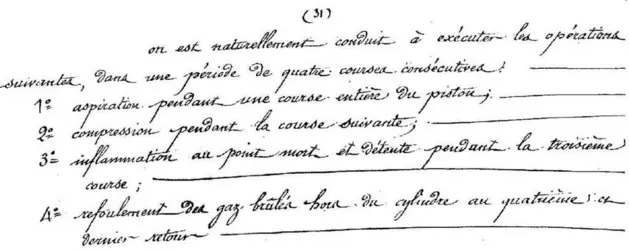 (31)
on est naturellement conduit à exécuter les opérations
suivantes, dans une période de quatre courses consécutives :
1° aspiration pendant une course entière du piston ;
2° compression pendant la course suivante ;
3° inflammation au point mort et détente pendant la troisième
course ;
4° refoulement des gaz brûlés hors du cylindre au quatrième et
dernier retour